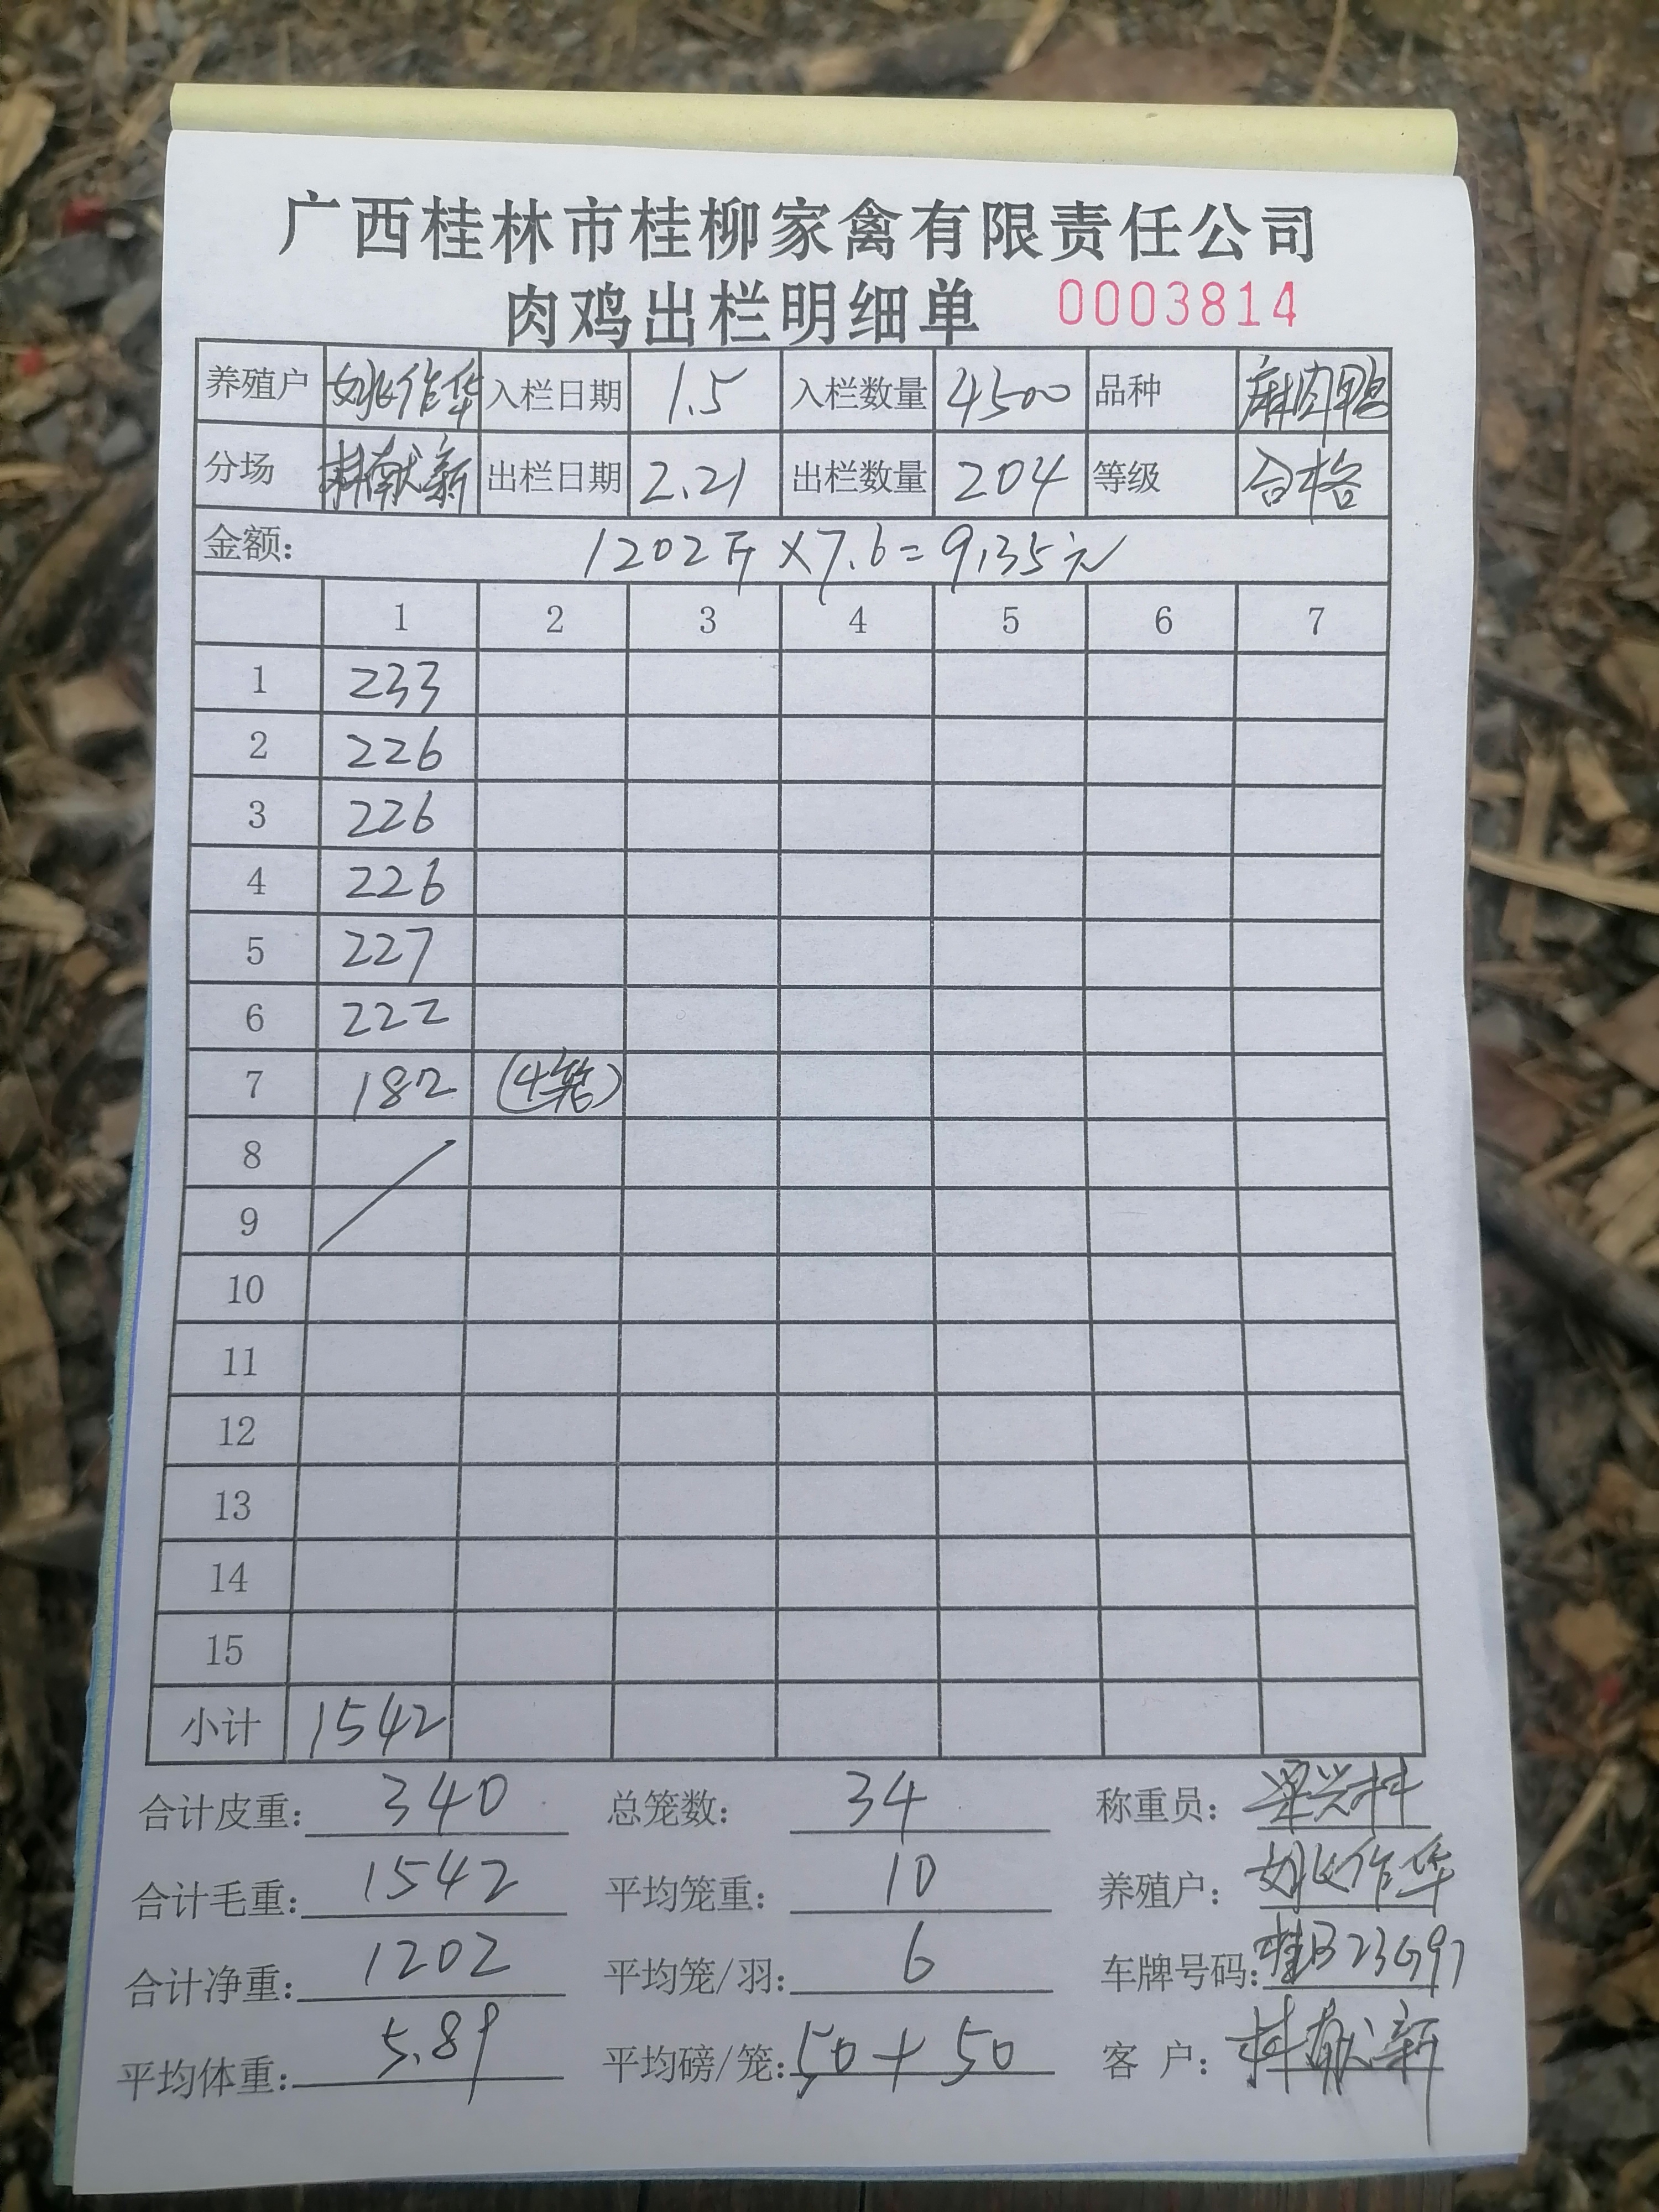 广西桂林市桂柳家禽有限责任公司
肉鸡出栏明细单 0003814
养殖户 姚作华 入栏日期 1.5 入栏数量 4500 品种 麻肉鸭
分场 林献新 出栏日期 2.21 出栏数量 204 等级 合格
金额: 1202斤×7.6=9135元
1 2 3 4 5 6 7
1 233
2 226
3 226
4 226
5 227
6 222
7 182 (4笼)
8
9
10
11
12
13
14
15
小计 1542
合计皮重: 340 总笼数: 34 称重员: 梁兴林
合计毛重: 1542 平均笼重: 10 养殖户: 姚作华
合计净重: 1202 平均笼/羽: 6 车牌号码: 桂B23G97
平均体重: 5.89 平均磅/笼: 50+50 客 户: 林献新